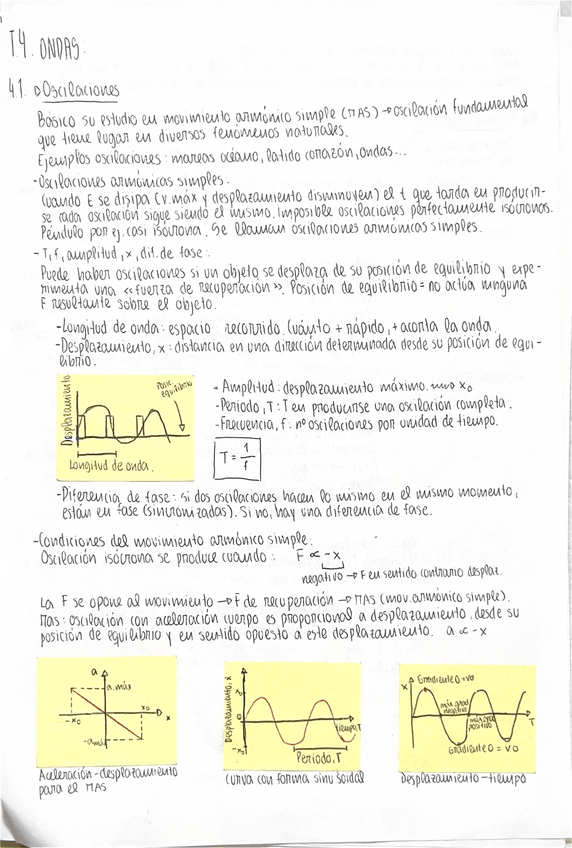 T4. ONDAS.
4.1. Oscilaciones
Básico su estudio en movimiento armónico simple (MAS) → oscilación fundamental
que tiene lugar en diversos fenómenos naturales.
Ejemplos oscilaciones: mareas océano, latido corazón, ondas...
- Oscilaciones armónicas simples:
Cuando E se disipa (v.máx y desplazamiento disminuyen) el t que tarda en producir-
se cada oscilación sigue siendo el mismo. Imposible oscilaciones perfectamente isócronas.
Péndulo por ej. casi isócrona. Se llaman oscilaciones armónicas simples.
- T, f, amplitud, x, dif. de fase:
Puede haber oscilaciones si un objeto se desplaza de su posición de equilibrio y expe-
rimenta una «fuerza de recuperación». Posición de equilibrio = no actúa ninguna
F resultante sobre el objeto.
- Longitud de onda: espacio recorrido. Cuánto + rápido, + acorta la onda.
- Desplazamiento, x: distancia en una dirección determinada desde su posición de equi-
librio.
Desplazamiento
Posic. equilibrio
Longitud de onda.
- Amplitud: desplazamiento máximo. x₀
- Periodo, T: T en producirse una oscilación completa.
- Frecuencia, f: nº oscilaciones por unidad de tiempo.
T = 1/f
- Diferencia de fase: si dos oscilaciones hacen lo mismo en el mismo momento,
están en fase (sincronizadas). Si no, hay una diferencia de fase.
- Condiciones del movimiento armónico simple:
Oscilación isócrona se produce cuando: F ∝ -x
negativo → F en sentido contrario desplaz.
La F se opone al movimiento → F de recuperación → MAS (mov. armónico simple).
Mas: oscilación con aceleración cuerpo es proporcional a desplazamiento, desde su
posición de equilibrio y en sentido opuesto a este desplazamiento. a ∝ -x
a
a.máx
-x₀
x₀
x
-a.máx
Aceleración - desplazamiento
para el MAS
Desplazamiento, x
x₀
0
-x₀
tiempo, T
Periodo, T
Curva con forma sinusoidal
x
Gradiente 0 = v.0
máx. grad negativo
máx. grad positivo
T
Gradiente 0 = v.0
Desplazamiento - tiempo